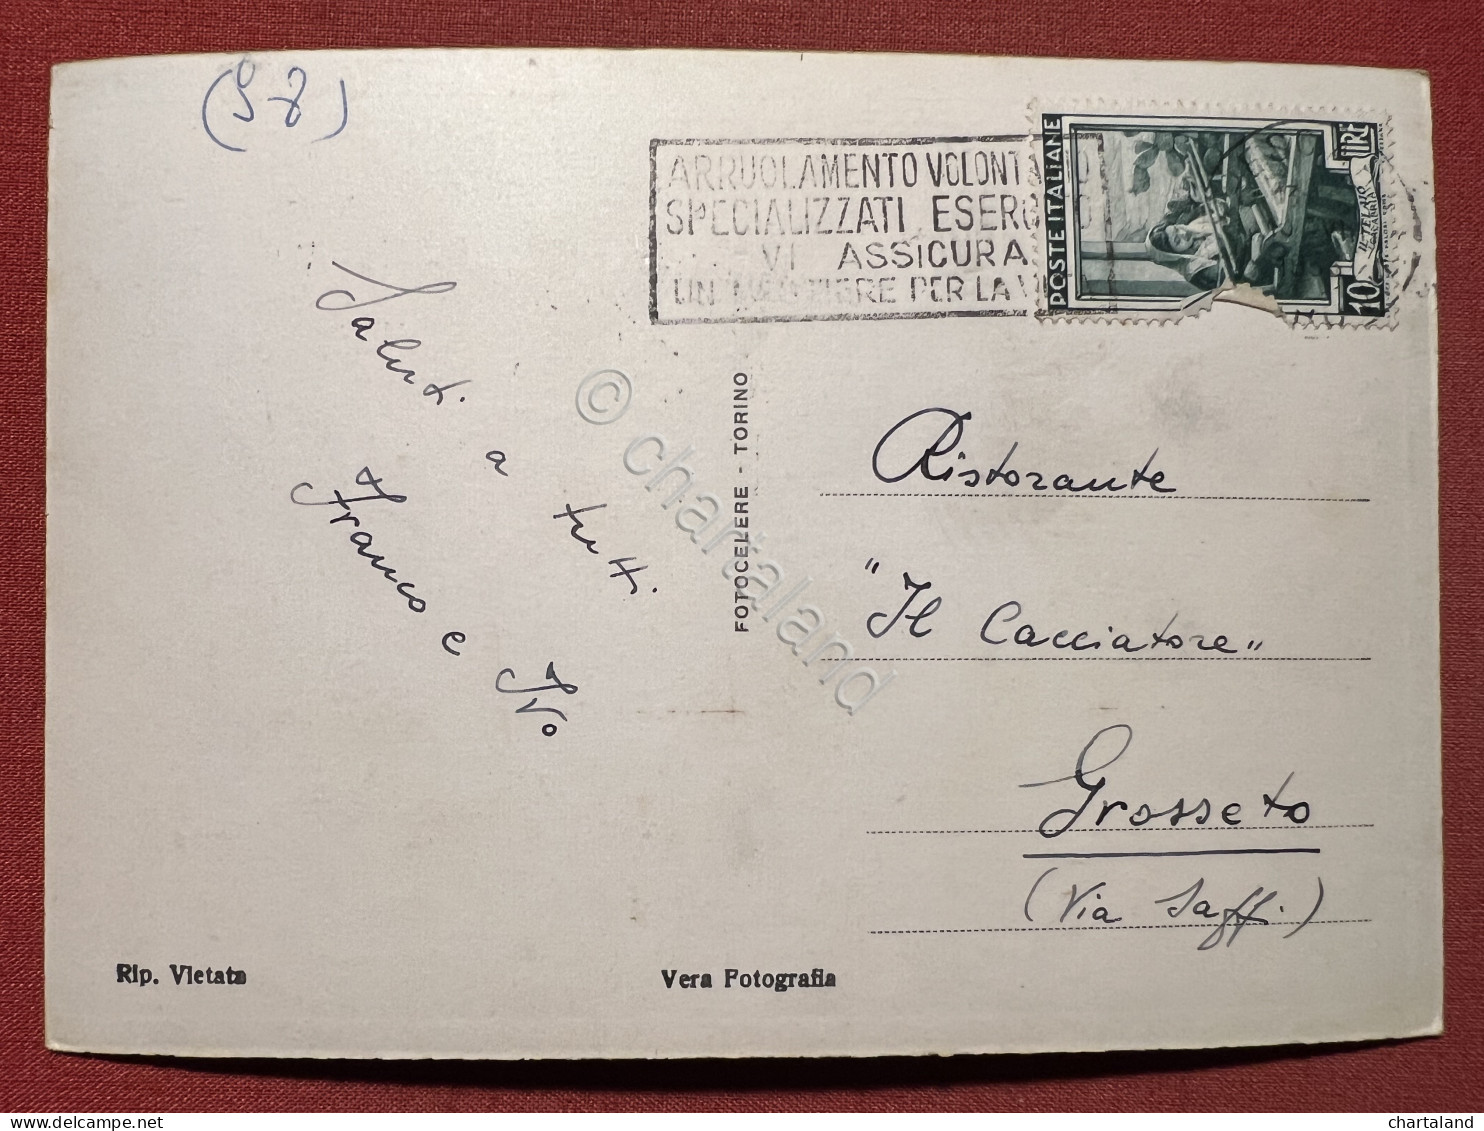 (58)
ARRUOLAMENTO VOLONTARIO
SPECIALIZZATI ESERCITO
VI ASSICURA
UN MESTIERE PER LA
POSTE ITALIANE
LIRE
10
IL TELAIO
CALABRIA
Saluti a tutti
Franco e Ivo
FOTOCELERE - TORINO
© chartaland
Ristorante
"Il Cacciatore"
Grosseto
(Via Saffi)
Rip. Vietata
Vera Fotografia
delcampe.net
chartaland